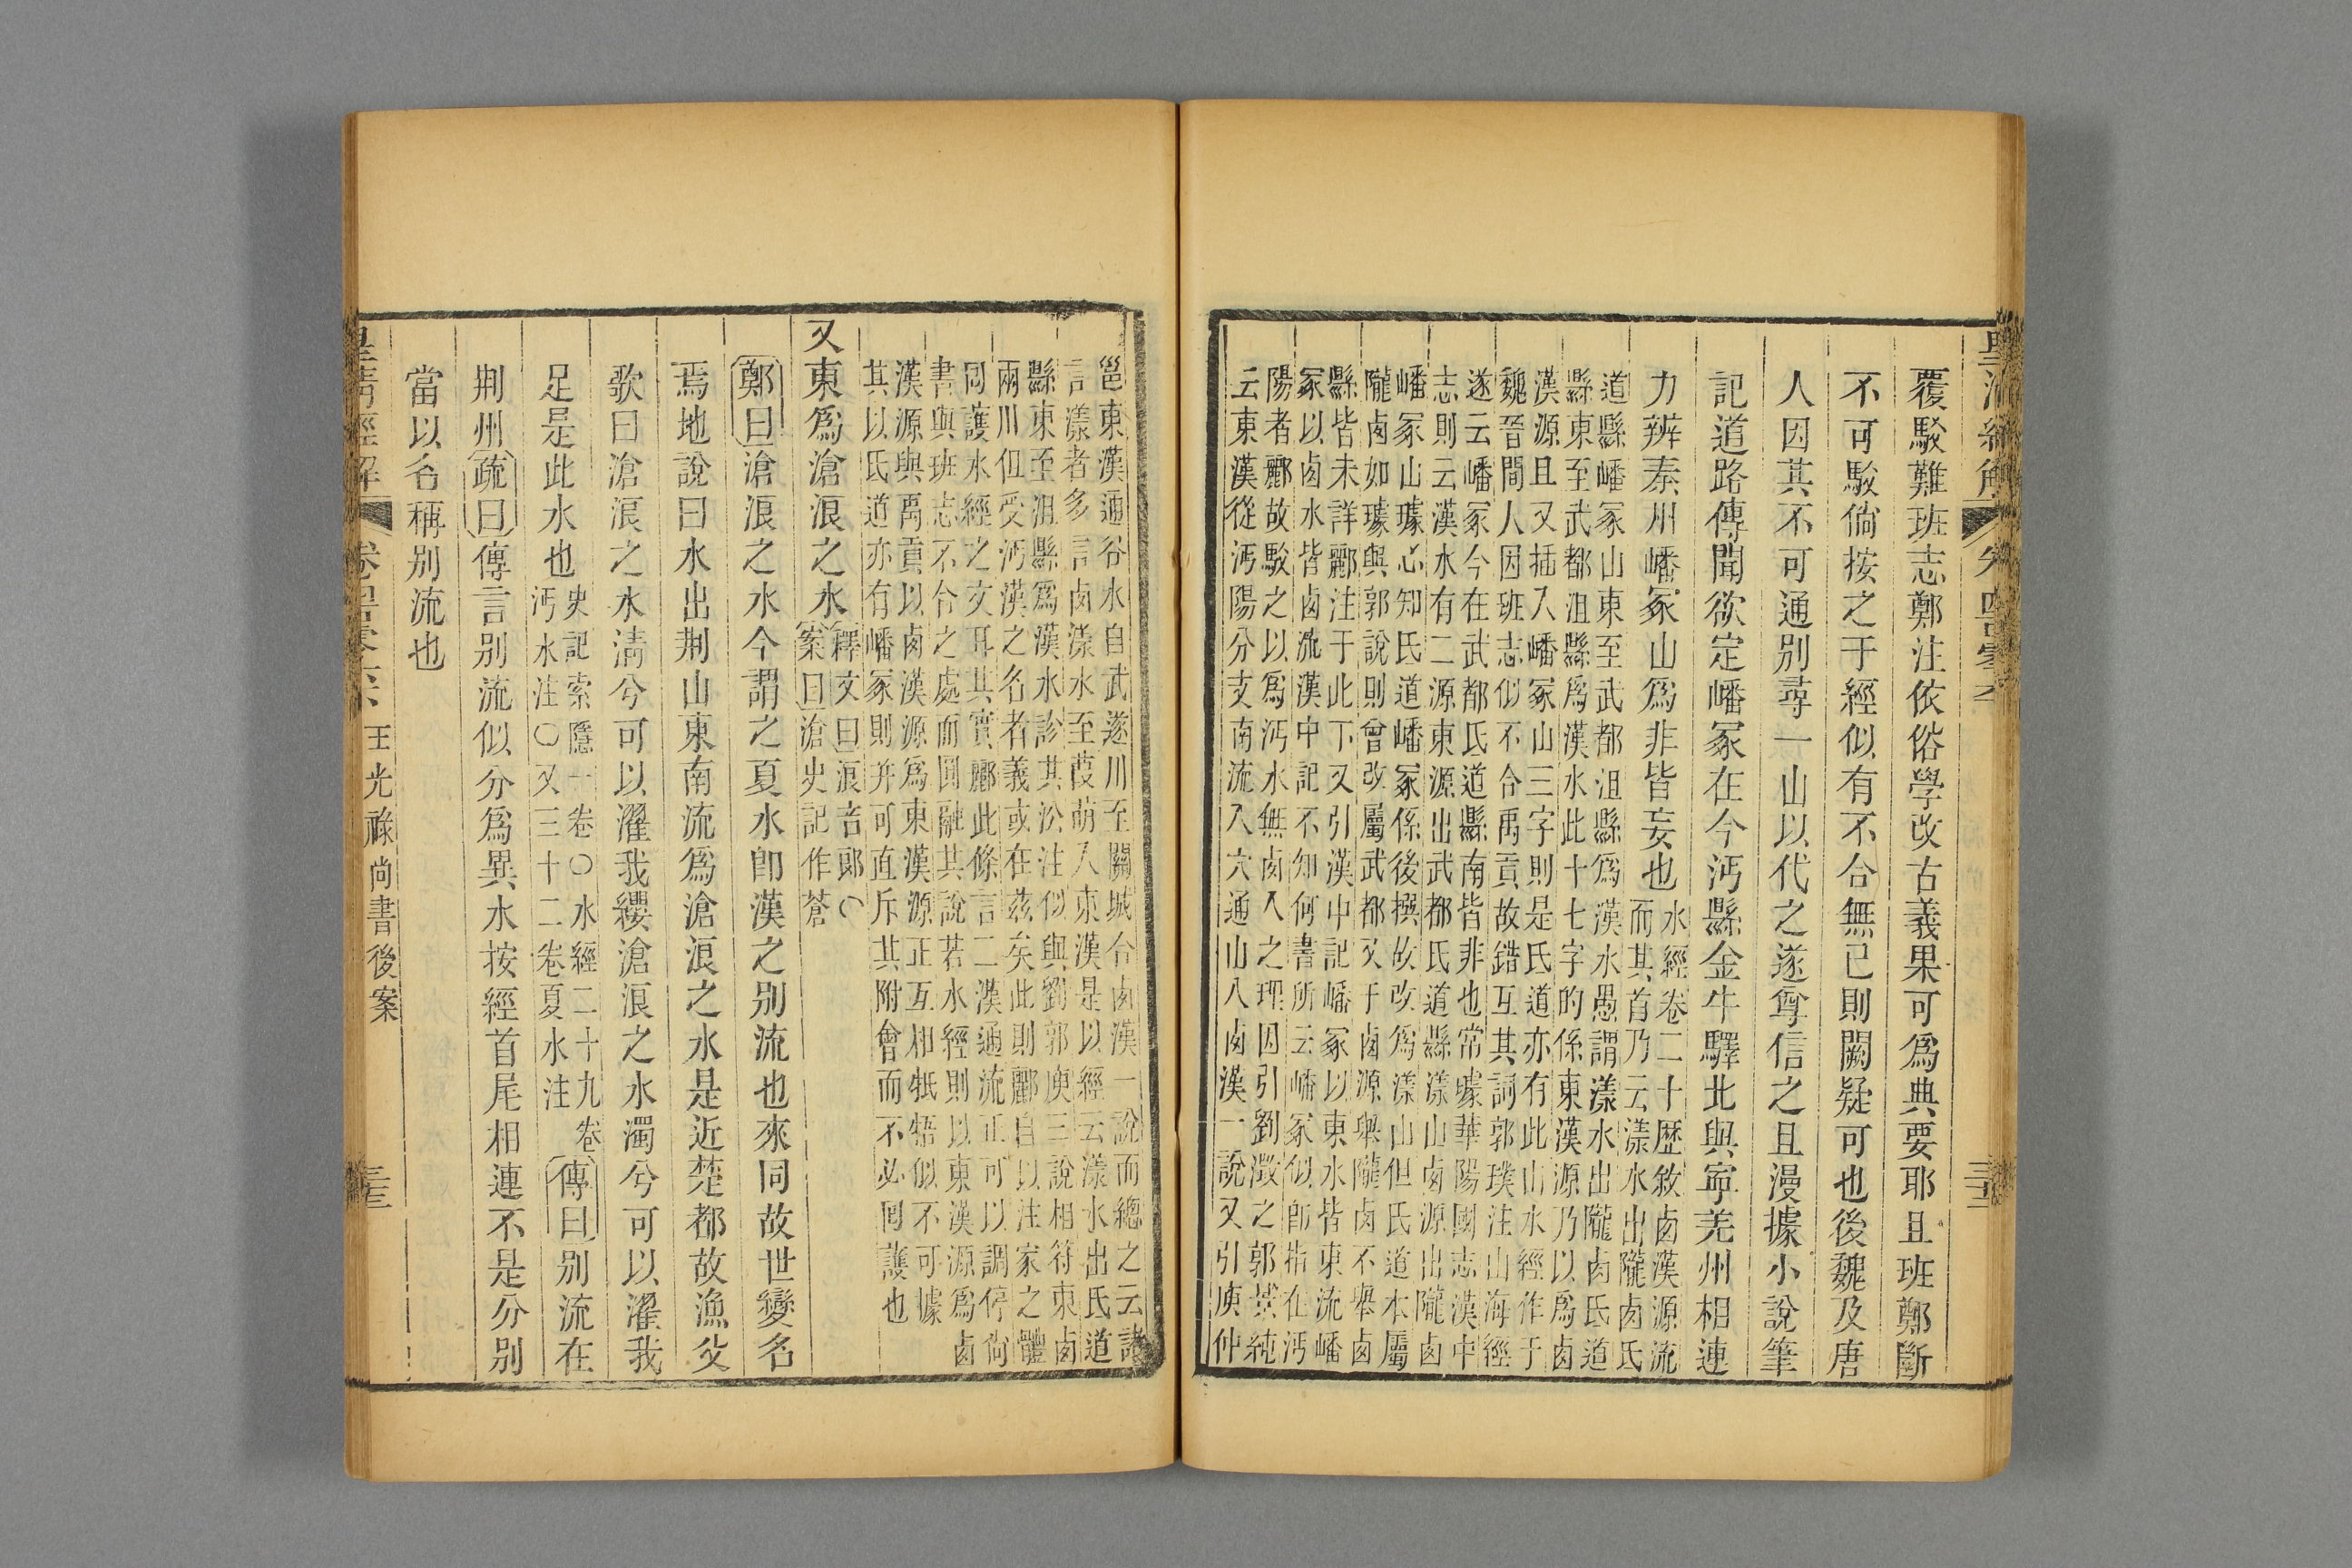 覆駁難班志鄭注依俗學改古義果可爲典要耶且班鄭斷
不可駁倘按之于經似有不合無已則闕疑可也後魏及唐
人因其不可通別尋一山以代之遂尊信之且漫據小說筆
記道路傳聞欲定嶓冢在今沔縣金牛驛北與寧羌州相連
力辨秦州嶓冢山爲非皆妄也
水經卷二十歷敘鹵漢源流
而其首乃云漾水出隴鹵氐
道縣嶓冢山東至武都沮縣爲漢水愚謂漾水出隴鹵氐道
縣東至武都沮縣爲漢水此十七字的係東漢源乃以爲鹵
漢源且又插入嶓冢山三字則是氐道亦有此山水經作于
魏晉間人因班志似不合禹貢故錯互其詞郭璞注山海經
遂云嶓冢今在武都氐道縣南皆非也常璩華陽國志漢中
志則云漢水有二源東源出武都氐道縣漾山鹵源出隴鹵
嶓冢山璩心知氐道嶓冢係後撰故改爲漾山但氐道本屬
隴鹵如璩與郭說則曾改屬武都又于鹵源舉隴鹵不舉鹵
縣皆未詳酈注于此下又引漢中記嶓冢以東水皆東流嶓
冢以鹵水皆鹵流漢中記不知何書所云嶓冢似卽指在沔
陽者酈故駁之以爲沔水無鹵入之理因引劉澂之郭景純
云東漢從沔陽分支南流入穴通山入鹵漢一說又引庾仲
邕東漢通谷水自武遂川至關城合鹵漢一說而總之云諸
言漾者多言鹵漾水至葭萌入東漢是以經云漾水出氐道
縣東至沮縣爲漢水診其㳂注似與劉郭庾三說相符東鹵
兩川但受沔漢之名者義或在茲矣此則酈自以注家之體
囘護水經之文耳其實酈此條言二漢通流正可以調停倘
書與班志不合之處而圓融其說若水經則以東漢源爲鹵
漢源與禹貢以鹵漢源爲東漢源正互相牴牾似不可據
其以氐道亦有嶓冢則并可直斥其附會而不必囘護也
又東爲滄浪之水
釋文曰浪音郞○
案曰滄史記作蒼
鄭曰滄浪之水今謂之夏水卽漢之別流也來同故世變名
焉地說曰水出荆山東南流爲滄浪之水是近楚都故漁父
歌曰滄浪之水淸兮可以濯我纓滄浪之水濁兮可以濯我
足是此水也
史記索隱一卷○水經二十九卷
沔水注○又三十二卷夏水注
傳曰別流在
荆州疏曰傳言別流似分爲異水按經首尾相連不是分別
當以名稱別流也
皇淸經解
王光祿尚書後案